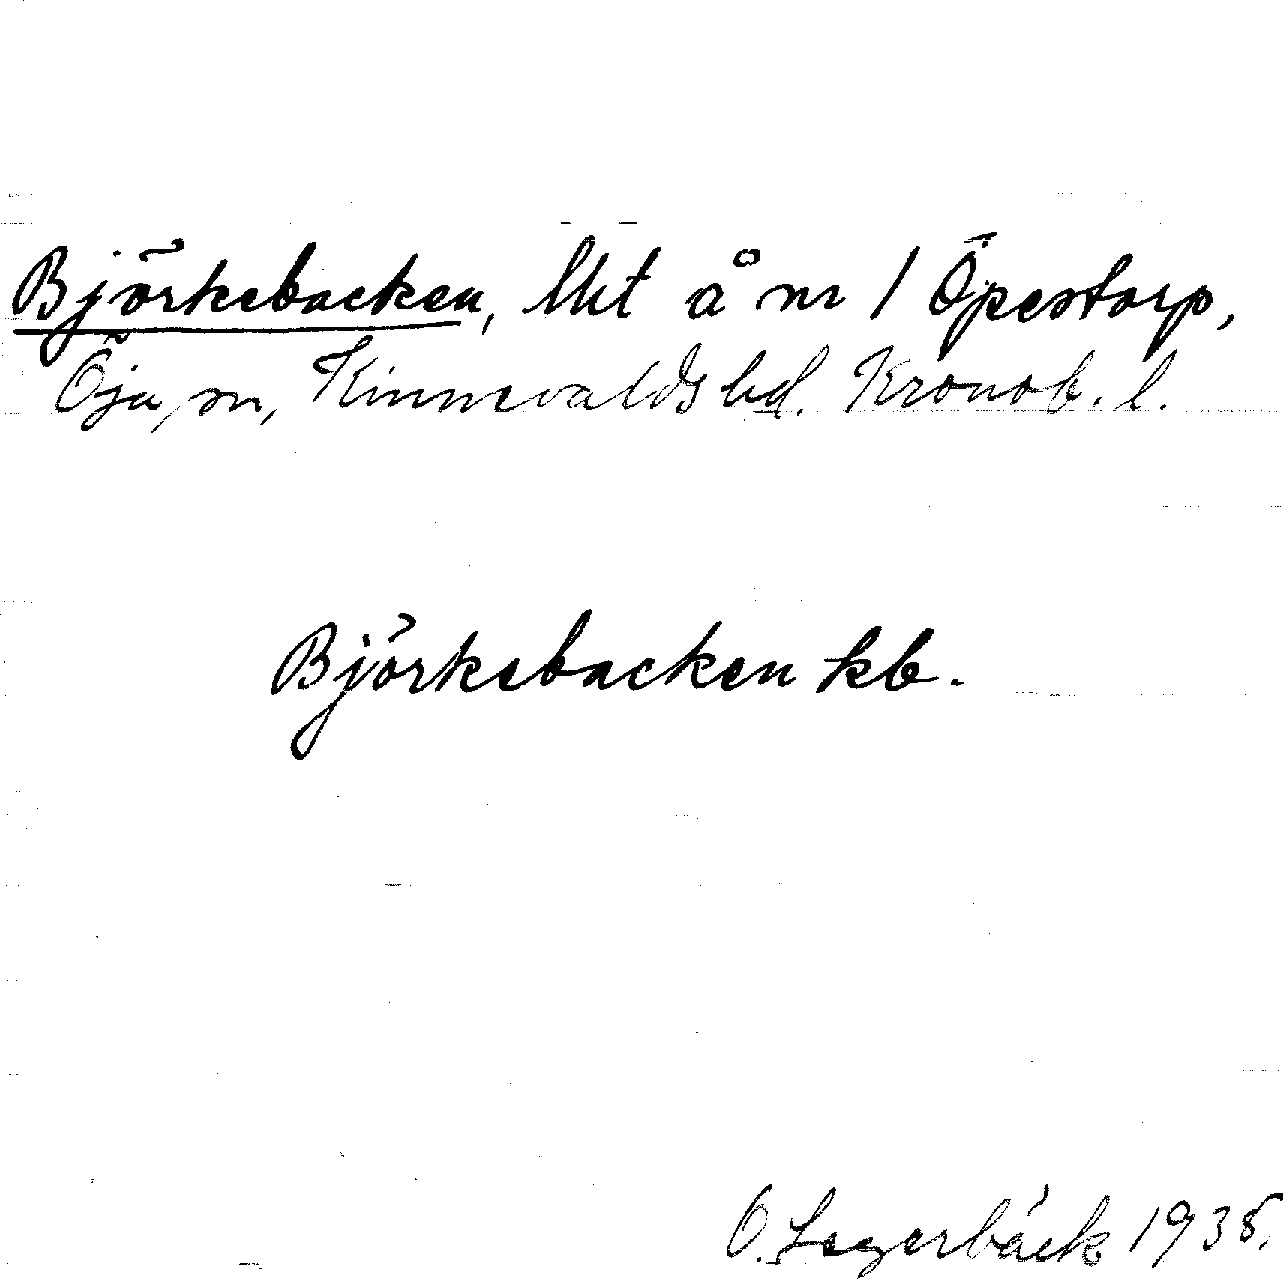 Björkebacken, lht å nr 1 Öpestorp,
Öja sn, Kinnevalds hd. Kronob. l.
Björkebacken kb.
O. Lagerbäck 1935.